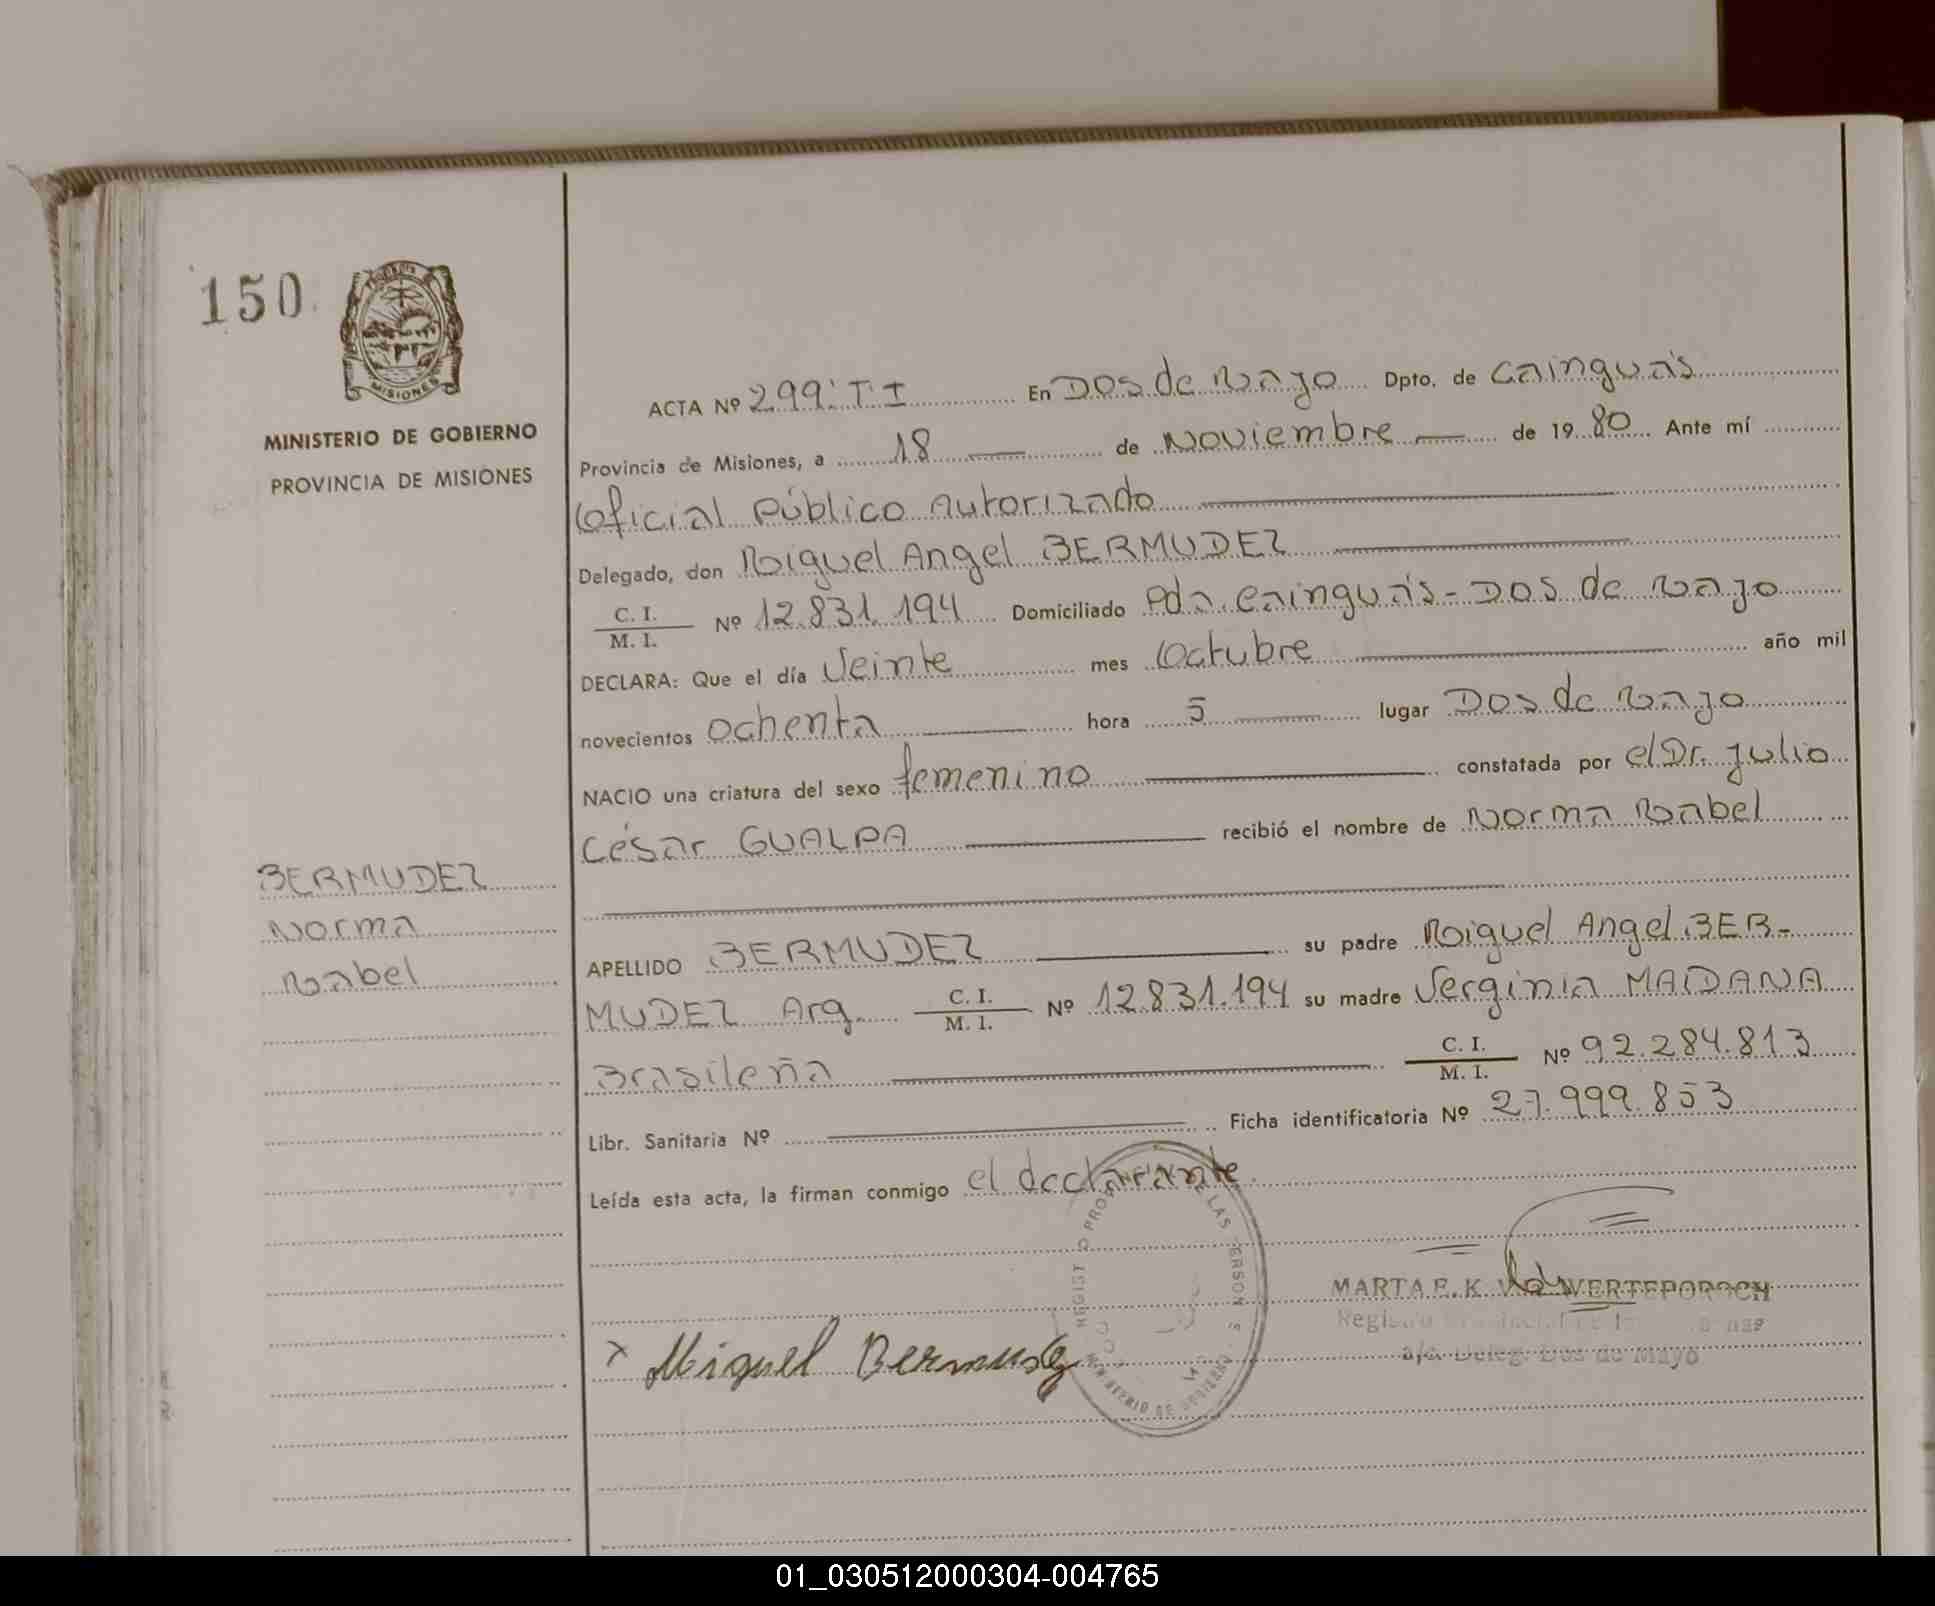 150
MISIONES
MINISTERIO DE GOBIERNO
PROVINCIA DE MISIONES
ACTA Nº 299: T I En Dos de Mayo Dpto. de Cainguás
Provincia de Misiones, a 18 de Noviembre de 1980 Ante mí
Oficial Público Autorizado
Delegado, don Miguel Angel BERMUDEZ
C. I.
M. I. Nº 12.831.194 Domiciliado Pda. Cainguás - Dos de Mayo
DECLARA: Que el día Veinte mes Octubre año mil
novecientos ochenta hora 5 lugar Dos de Mayo
NACIO una criatura del sexo femenino constatada por el Dr. Julio
César GUALPA recibió el nombre de Norma Mabel
BERMUDEZ
Norma
Mabel
APELLIDO BERMUDEZ su padre Miguel Angel BER-
MUDEZ Arg. C. I.
M. I. Nº 12.831.194 su madre Verginia MAIDANA
Brasileña C. I.
M. I. Nº 92.284.813
Libr. Sanitaria Nº Ficha identificatoria Nº 27.999.853
Leída esta acta, la firman conmigo el declarante
x Miguel Bermudez
MARTA E. K. Vda WERTEPOROCH
a/c Deleg. Dos de Mayo
01_030512000304-004765